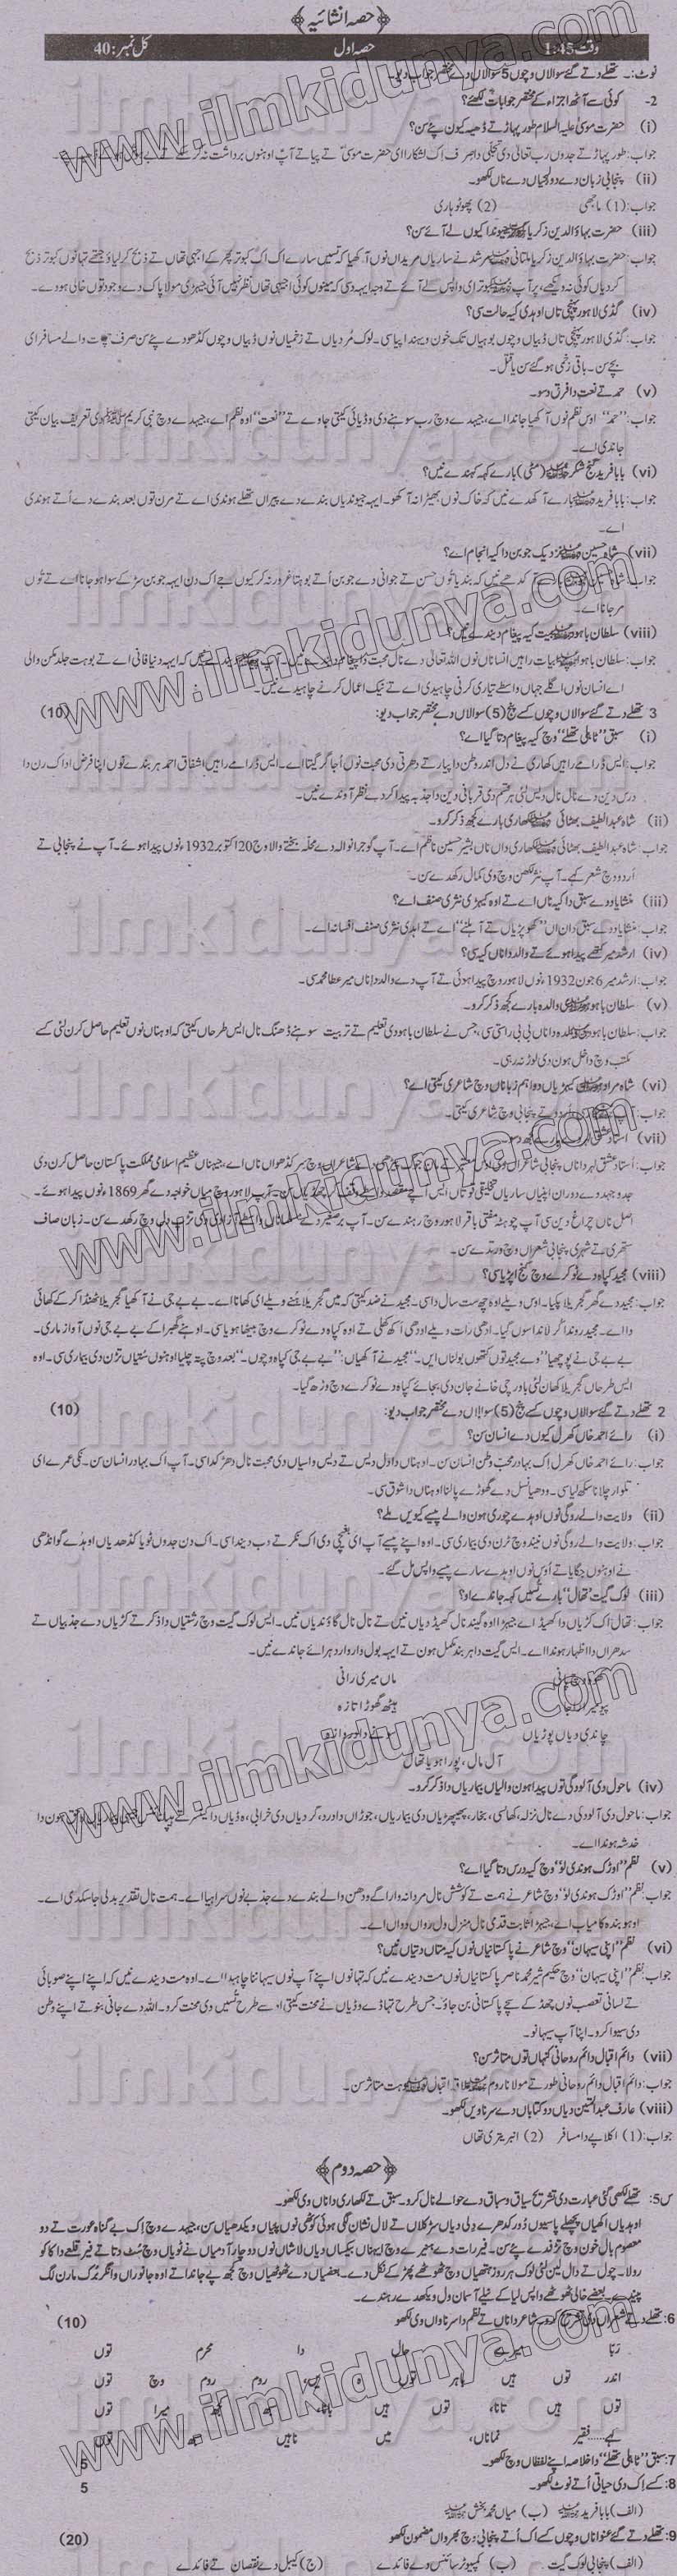 ﴿حصہ انشائیہ﴾
وقت 1:45 حصہ اول کل نمبر: 40
نوٹ:۔ تھلے دتے گئے سوالاں وچوں 5 سوالاں دے مختصر جواب دیو۔
2- کوئی سے آٹھ اجزاء کے مختصر جوابات لکھئے؟
(i) حضرت موسیٰ علیہ السلام طور پہاڑ تے ڈھیہ کیون پئے سن؟
جواب: طور پہاڑ تے جدوں رب تعالیٰ دی تجلی دا صرف اِک لشکارا ای حضرت موسیٰ تے پیا تے آپ اوہنوں برداشت نہ کر سکے تے
(ii) پنجابی زبان دے دو لہجیاں دے ناں لکھو۔
جواب: (1) ماجھی (2) پوٹھوہاری
(iii) حضرت بہاؤالدین زکریا جیوندا کبوتر کیوں لے آئے سن؟
جواب: حضرت بہاؤالدین زکریا ملتانی دے مرشد نے ساریاں مریداں نوں آکھیا کہ تسیں سارے اک اک کبوتر پھڑ کے اجیہی تھاں تے ذبح کر لیاؤ جتھے تہانوں کبوتر ذبح
کردیاں کوئی نہ ویکھے، پر آپ کبوتر ای واپس لے آئے تے وجہ ایہہ دسی کہ مینوں کوئی اجیہی تھاں نظر نہیں آئی جیہڑی مولا پاک دے وجود توں خالی ہووے۔
(iv) گڈی لاہور پہنچی تاں اوہدی کیہ حالت سی؟
جواب: گڈی لاہور پہنچی تاں ڈبیاں وچوں بوہیاں تک خون ویہندا پیا سی۔ لوک مُردیاں تے زخمیاں نوں ڈبیاں وچوں کڈھ دے پئے سن صرف چھت والے مسافر ای
بچے سن۔ باقی زخمی ہو گئے سن یا قتل۔
(v) حمد تے نعت دا فرق دسو۔
جواب: "حمد" اوس نظم نوں آکھیا جاندا اے، جیہدے وچ رب سوہنے دی وڈیائی کیتی جاوے تے "نعت" اوہ نظم اے، جیہدے وچ نبی کریم ﷺ دی تعریف بیان کیتی
جاندی اے۔
(vi) بابا فرید گنج شکر (مٹی) بارے کیہ کہندے نیں؟
جواب: بابا فرید بارے آکھدے نیں کہ خاک نوں بھیڑا نہ آکھو۔ ایہہ جیوندیاں بندے دے پیراں تھلے ہوندی اے تے مرن توں بعد بندے دے اُتے ہوندی
اے۔
(vii) شاہ حسین نزدیک جوبن دا کیہ انجام اے؟
جواب: کدھے نیں کہ بندیا توں حسن تے جوانی دے جوبن اُتے بوہتا غرور نہ کر کیوں جے اک دن ایہہ جوبن سڑ کے سواہ ہو جانا اے تے توں
مر جانا اے۔
(viii) سلطان باہو بیت کیہ پیغام دیندے نیں؟
جواب: سلطان باہو ابیات راہیں انساناں نوں اللہ تعالیٰ دے نال محبت دا پیغام دیندے نیں۔ آپ کہندے نیں کہ ایہہ دنیا فانی اے تے بوہت جلد مکن والی
اے انسان نوں اگلے جہاں واسطے تیاری کرنی چاہیدی اے تے نیک اعمال کرنے چاہیدے نیں۔
3 تھلے دتے گئے سوالاں وچوں کسے پنج (5) سوالاں دے مختصر جواب دیو: (10)
(i) سبق "ٹاہلی تھلے" وچ کیہ پیغام دتا گیا اے؟
جواب: ایس ڈرامے راہیں لکھاری نے دل اندر وطن دا پیار تے دھرتی دی محبت نوں اُجاگر کیتا اے۔ ایس ڈرامے راہیں اشفاق احمد ہر بندے نوں اپنا فرض ادا کرن دا
درس دین دے نال نال دیس لئی ہر قسم دی قربانی دین دا جذبہ پیدا کردے نظر آوندے نیں۔
(ii) شاہ عبدالطیف بھٹائی لکھاری بارے کجھ ذکر کرو۔
جواب: شاہ عبدالطیف بھٹائی لکھاری داں ناں بشیر حسین ناظم اے۔ آپ گوجرانوالہ دے محلہ بختے والا وچ 20 اکتوبر 1932ء نوں پیدا ہوئے۔ آپ نے پنجابی تے
اُردو وچ شعر کہے۔ آپ نثر لکھن وچ وی کمال رکھدے سن۔
(iii) منشا یاد دے سبق دا کیہ ناں اے تے اوہ کیہڑی نثری صنف اے؟
جواب: منشا یاد دے سبق دا ناں "کھوپڑیاں تے آہلنے" اے تے ایہدی نثری صنف افسانہ اے۔
(iv) ارشد میر کتھے پیدا ہوئے تے والد دا ناں کیہ سی؟
جواب: ارشد میر 6 جون 1932ء نوں لاہور وچ پیدا ہوئی تے آپ دے والد دا ناں میر عطا محمد سی۔
(v) سلطان باہو دی والدہ بارے کجھ ذکر کرو۔
جواب: سلطان باہو دی والدہ دا ناں بی بی راستی سی، جس نے سلطان باہو دی تعلیم تے تربیت سوہنے ڈھنگ نال ایس طرحاں کیتی کہ اوہناں نوں تعلیم حاصل کرن لئی کسے
مکتب وچ داخل ہون دی لوڑ نہ رہی۔
(vi) شاہ مراد کیہڑیاں دو اہم زباناں وچ شاعری کیتی اے؟
جواب: اردو تے پنجابی وچ شاعری کیتی۔
(vii) استاد عشق لہر بارے کجھ دسو
جواب: اُستاد عشق لہر دا ناں پنجابی شاعراں دی اوس سر کڈھواں ناں اے، جیہناں عظیم اسلامی مملکت پاکستان حاصل کرن دی
جدوجہد دے دوران اپنیاں ساریاں تخلیقی قوتاں ایس اُچے مقصد آپ لاہور وچ میاں خواجہ دے گھر 1869ء نوں پیدا ہوئے۔
اصل ناں چراغ دین سی آپ چوہٹہ مفتی باقر لاہور وچ رہندے سن۔ آپ برصغیر دے مسلماناں واسطے آزادی دی تڑپ دل وچ رکھدے سن۔ زبان صاف
ستھری تے شہری پنجابی شعراں وچ ورتدے سن۔
(viii) مجید کپاہ دے ٹوکرے وچ کنج اپڑیا سی؟
جواب: مجید دے گھر گجریلا پکیا۔ اوس ویلے اوہ چھ ست سال دا سی۔ مجید نے ضد کیتی کہ میں گجریلا ہنے ویلے ای کھانا اے۔ بے بے جی نے آکھیا گجریلا ٹھنڈا کر کے کھائی
دا اے۔ مجید روندا کُرلاندا سوں گیا۔ ادھی رات ویلے اوہدی اکھ کھلی تے اوہ کپاہ دے ٹوکرے وچ بیٹھا ہویا سی۔ اوہنے گھبرا کے بے بے جی نوں آواز ماری۔
بے بے جی نے پوچھیا "وے مجید توں کتھوں بولناں ایں۔" مجید نے آکھیاں: "بے بے جی کپاہ وچوں۔" بعد وچ پتہ چلیا اوہنوں سُتیاں ٹرن دی بیماری سی۔ اوہ
ایس طرحاں گجریلا کھان لئی باورچی خانے جان دی بجائے کپاہ دے ٹوکرے وچ وڑھ گیا۔
2 تھلے دتے گئے سوالاں وچوں کسے پنج (5) سوالاں دے مختصر جواب دیو: (10)
(i) رائے احمد خاں کھرل کیوں دے انسان سن؟
جواب: رائے احمد خاں کھرل اِک بہادر محب وطن اِنسان سن۔ اوہناں دا دل دیس تے دیس واسیاں دی محبت نال دھڑکدا سی۔ آپ اک بہادر انسان سن۔ نکی عمرے ای
تلوار چلانا سکھ لیا سی۔ ودھیا نسل دے گھوڑے پالنا اوہناں دا شوق سی۔
(ii) ولایت والے روگی نوں اوہدے چوری ہون والے پیسے کیویں ملے؟
جواب: ولایت والے روگی نوں نیند وچ ٹرن دی بیماری سی۔ اوہ اپنے پیسے آپ ای بغیچی دی اک نکرے دب دیندا سی۔ اک دن جدوں ٹویا کڈھدیاں اوہدے گوانڈھی
نے اوہنوں جگایا تے اُوس نوں اوہدے سارے پیسے واپس مل گئے۔
(iii) لوک گیت "تھال" بارے تسیں کیہ جاندے او؟
جواب: تھال اک کڑیاں دا کھیڈ اے جیہڑا اوہ گیند نال کھیڈدیاں نیں تے نال نال گاؤندیاں نیں۔ ایس لوک گیت وچ رشتیاں دا ذکر تے کڑیاں دے جذبیاں تے
سدھراں دا اظہار ہوندا اے۔ ایس گیت دا ہر بند مکمل ہون تے ایہہ بول وار وار دہرائے جاندے نیں۔
کھوہ وچ پانی ماں میری رانی
ہیٹھ گھوڑا تازہ
چاندی دیاں پوڑیاں سونے دا دروازہ
آل مال، پورا ہویا تھال
(iv) ماحول دی آلودگی توں پیدا ہون والیاں بیماریاں دا ذکر کرو۔
جواب: ماحول دی آلودگی دے نال نزلہ، کھانسی، بخار، پھیپھڑیاں دی بیماریاں، جوڑاں دا درد، گردیاں دی خرابی، ہڈیاں دا کینسر تے ہون دا
خدشہ ہوندا اے۔
(v) نظم "اوڑک ہوندی لو" وچ کیہ درس دتا گیا اے؟
جواب: نظم "اوڑک ہوندی لو" وچ شاعر نے ہمت تے کوشش نال مردانہ وار اگے ودھن والے بندے دے جذبے نوں سراہیا اے۔ ہمت نال تقدیر بدلی جا سکدی اے۔
اوہو بندہ کامیاب اے، جیہڑا ثابت قدمی نال منزل ول رواں دواں اے۔
(vi) نظم "اپنی سیہان" وچ شاعر نے پاکستانیاں نوں کیہ متاں دتیاں نیں؟
جواب: نظم "اپنی سیہان" وچ حکیم شیر محمد ناصر پاکستانیاں نوں مت دیندے نیں کہ تہانوں اپنے آپ نوں سیہاننا چاہیدا اے۔ اوہ مت دیندے نیں کہ اپنے اپنے صوبائی
تے لسانی تعصب نوں چھڈ کے سچے پاکستانی بن جاؤ۔ جس طرح تہاڈے وڈیاں نے محنت کیتی اوسے طرح تُسیں وی محنت کرو۔ اللہ دے جانی بنو تے اپنے وطن
دی سیوا کرو۔ اپنا آپ سیہانو۔
(vii) دائم اقبال دائم روحانی کنہاں توں متاثر سن؟
جواب: دائم اقبال دائم روحانی طور تے مولانا روم تے علامہ اقبال توں بہت متاثر سن۔
(viii) عارف عبدالمتین دیاں دو کتاباں دے سرناویں لکھو۔
جواب: (1) اکلاپے دا مسافر (2) امبر تری تھاں
﴿حصہ دوم﴾
س5: تھلے لکھی گئی عبارت دی تشریح سیاق و سباق دے حوالے نال کرو۔ سبق تے لکھاری دا ناں وی لکھو۔
اوہدیاں اکھیاں پچھلے پاسیوں دُور کدھرے دِلی دیاں سڑکاں تے لال نشان لگی ہوئی کوٹھی نوں پئیاں ویکھدیاں سن، جیہدے وچ اِک بے گناہ عورت تے دو
معصوم بال خون وچ تڑفدے پئے سن۔ فیر رات دے ہنیرے وچ ایہناں بیکساں دیاں لاشاں نوں دو چار آدمیاں نے ٹویاں وچ سُٹ دتا تے فیر قلعے دا کا کو
رولا۔ چول تے دال لین لئی لوک ہر روز ہتھیاں وچ ٹھوٹھے پھڑ کے نکل دے۔ بعضیاں دے ٹھوٹھیاں وچ کجھ پے جاندا تے اوہ جانوراں وانگر بُرک مارن لگ
پیندے۔ بعضے خالی ٹھوٹھے واپس لیا کے نیلے آسمان ول ویکھدے رہندے۔
6: تھلے دتے شعراں دی تشریح کرو۔ شاعر دا ناں تے نظم دا سرناواں وی لکھو (10)
ربّا میرے حال دا محرم توں
اندر توں ہیں باہر توں ہیں، روم روم وچ توں
توں ہیں تانا، توں ہیں بانا، سبھ کجھ میرا توں
کہے.....فقیر نماناں، میں ناہیں سبھ توں
7: سبق "ٹاہلی تھلے" دا خلاصہ اپنے لفظاں وچ لکھو۔ 5
8: کسے اِک دی حیاتی اُتے نوٹ لکھو۔ 5
(الف) بابا فرید (ب) میاں محمد بخش
9: تھلے دتے گئے عنواناں وچوں کسے اک اُتے پنجابی وچ بھرواں مضمون لکھو (20)
(الف) پنجابی لوک گیت (ب) کمپیوٹر سائنس دے فائدے (ج) کیبل دے نقصان تے فائدے
www.ilmkidunya.com